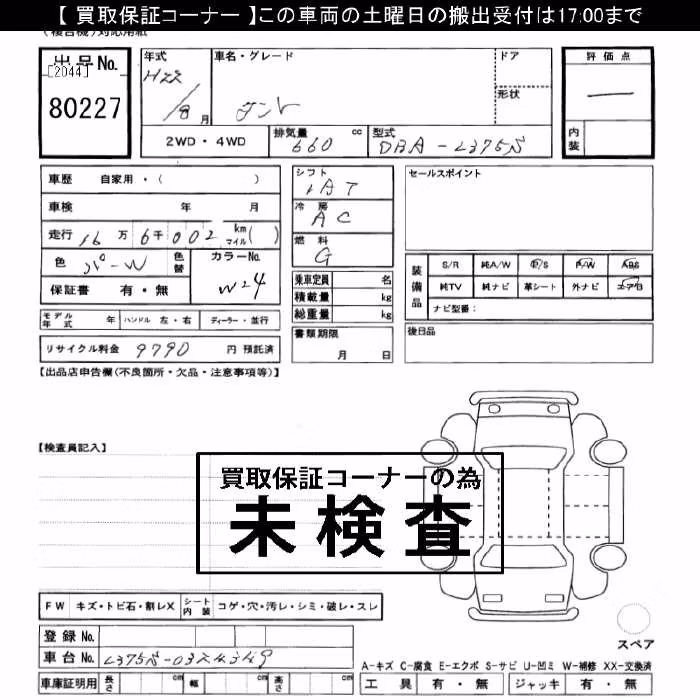 【 買取保証コーナー 】この車両の土曜日の搬出受付は17:00まで
(複合機)対応用紙
出品No.
[2044]
80227
年式
H22
/8 月
車名・グレード
タント
ドア
形状
2WD・4WD
排気量 660 cc
型式 DBA-L375S
評価点
内装
車歴 自家用・( )
車検 年 月
走行 16万 6千 002 km マイル( )
色 パーW 色替
カラーNo. W24
保証書 有・無
シフト
IAT
冷房
AC
燃料
G
乗車定員 名
積載量 kg
総重量 kg
セールスポイント
装備品
S/R 純A/W P/S P/W ABS
純TV 純ナビ 革シート 外ナビ エアB
ナビ型番:
モデル年式 年 ハンドル 左・右 ディーラー・並行
書類期限
月 日
後日品
リサイクル料金 9790 円 預託済
【出品店申告欄(不良箇所・欠品・注意事項等)】
【検査員記入】
買取保証コーナーの為
未検査
FW キズ・トビ石・割レX シート内装 コゲ・穴・汚レ・シミ・破レ・スレ
登録 No.
車台 No.
車庫証明用 長さ cm 幅 cm 高さ cm
スペア
A-キズ C-腐食 E-エクボ S-サビ U-凹ミ W-補修 XX-交換済
工具 有・無 ジャッキ 有・無